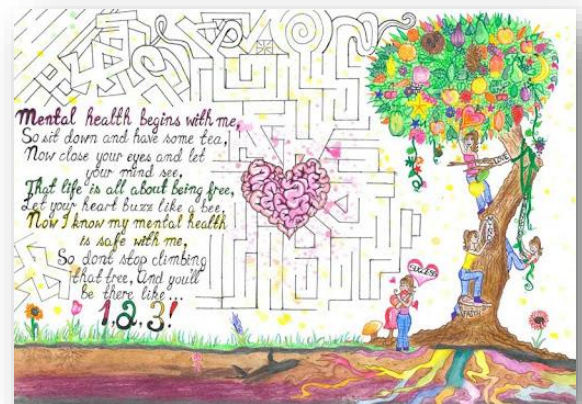 Mental health begins with me,
So sit down and have some tea,
Now close your eyes and let
your mind see,
That life is all about being free,
Let your heart buzz like a bee,
Now I know my mental health
is safe with me,
So dont stop climbing
that tree, And you'll
be there like...
1,2,3!
LOVE
FAITH